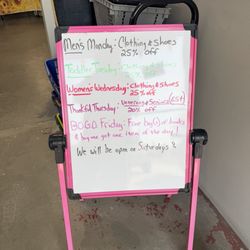 Men's Monday: Clothing & Shoes
25% off
Toddler Tuesday: Clothing & Shoes
25% off
Women's Wednesday: Clothing & Shoes
25% off
Thankful Thursday: Veterans & Seniors
20% off
B.O.G.O. Friday: Free bag(s) of books
buy one get one item of the day!
We will be open on Saturdays